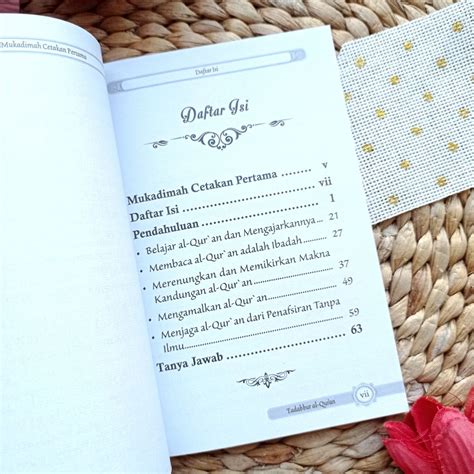 Mukadimah Cetakan Pertama
Daftar Isi
Daftar Isi
Mukadimah Cetakan Pertama ........ v
Daftar Isi ................................ vii
Pendahuluan ........................... 1
• Belajar al-Qur`an dan Mengajarkannya... 21
• Membaca al-Qur`an adalah Ibadah....... 27
• Merenungkan dan Memikirkan Makna
Kandungan al-Qur`an ..................... 37
• Mengamalkan al-Qur`an .................. 49
• Menjaga al-Qur`an dari Penafsiran Tanpa
Ilmu........................................ 59
Tanya Jawab ............................. 63
Tadabbur al-Qur'an
vii